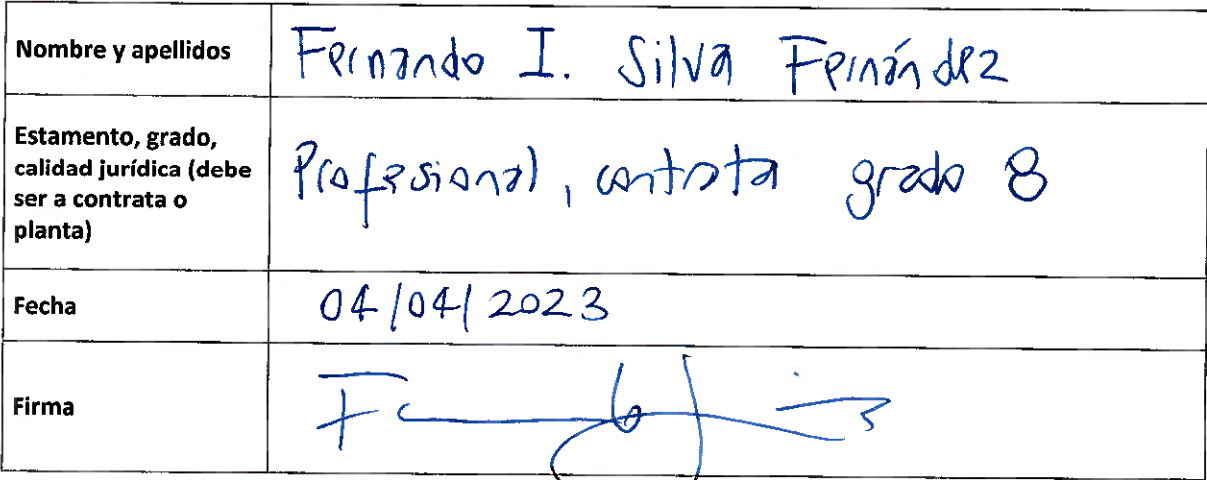 Nombre y apellidos
Fernando I. Silva Fernández
Estamento, grado,
calidad jurídica (debe
ser a contrata o
planta)
Profesional, contrata grado 8
Fecha
04/04/2023
Firma